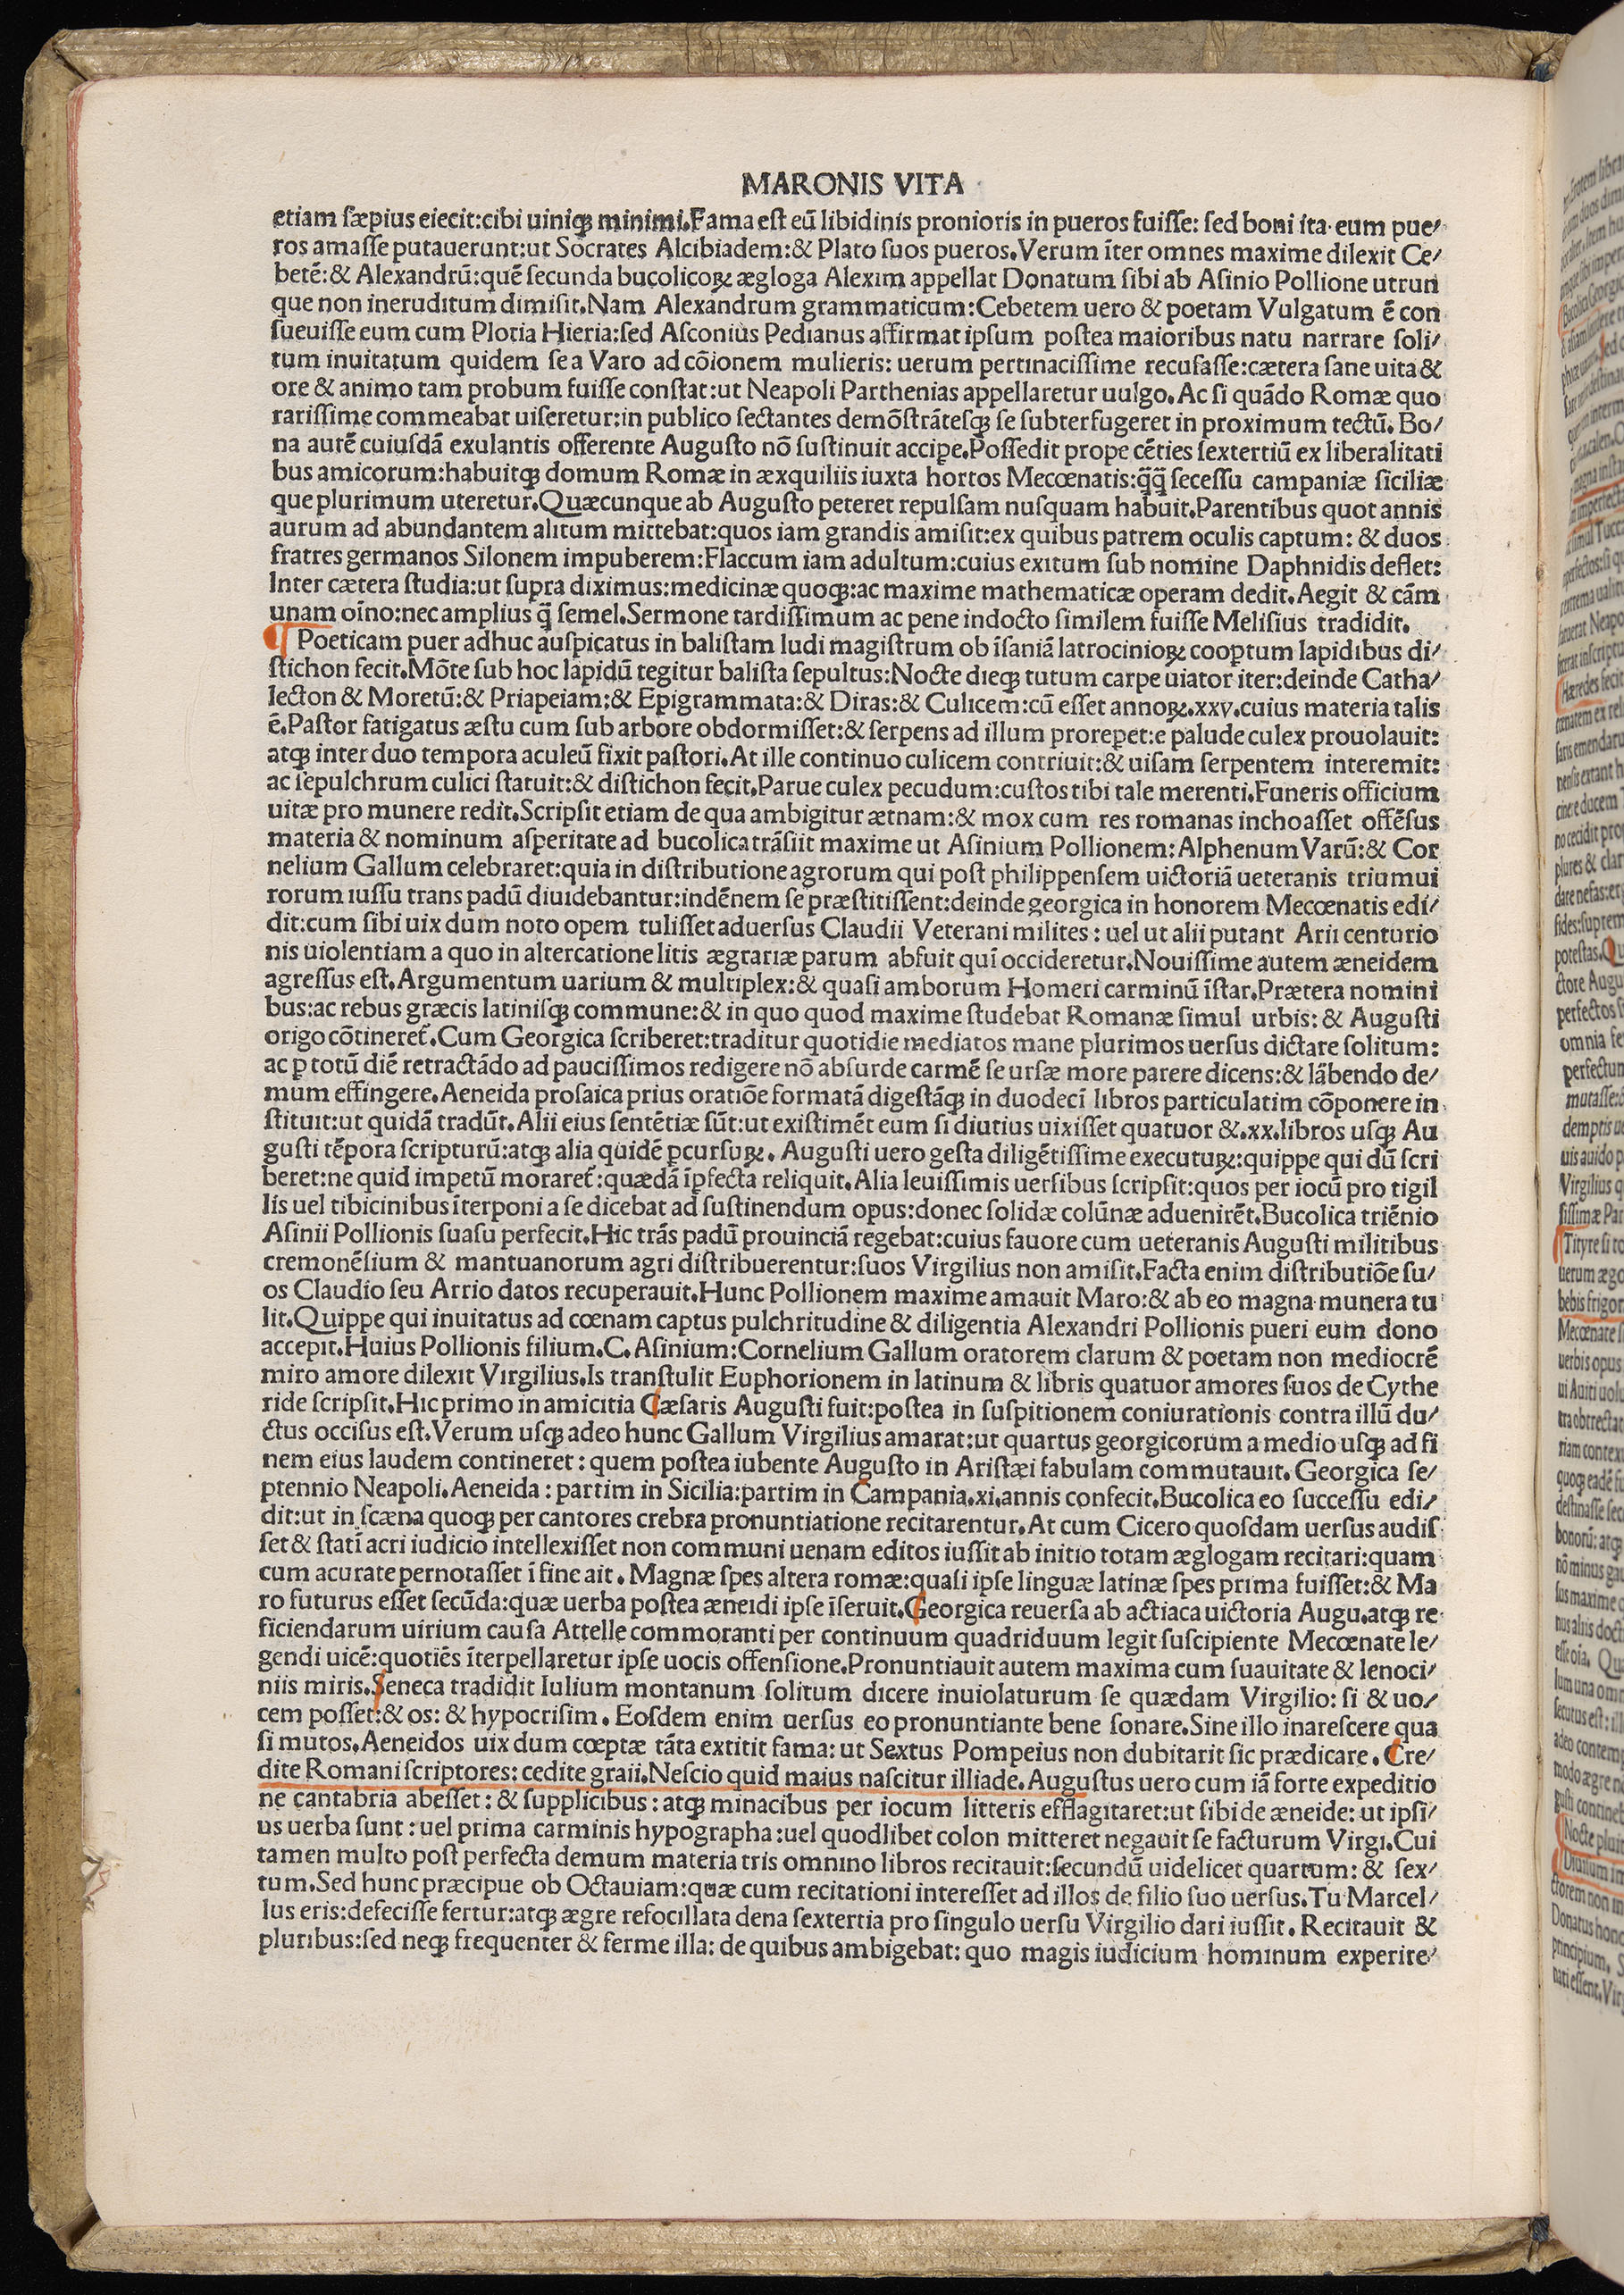 MARONIS VITA
etiam sæpius eiecit:cibi uiniqꝫ minimi.Fama est eũ libidinis pronioris in pueros fuisse: sed boni ita eum pue/
ros amasse putauerunt:ut Socrates Alcibiadem:& Plato suos pueros.Verum īter omnes maxime dilexit Ce/
betẽ:& Alexandrũ:quẽ secunda bucolicoꝝ ægloga Alexim appellat Donatum sibi ab Asinio Pollione utrun
que non ineruditum dimisit.Nam Alexandrum grammaticum:Cebetem uero & poetam Vulgatum ẽ con
sueuisse eum cum Plotia Hieria:sed Asconius Pedianus affirmat ipsum postea maioribus natu narrare soli/
tum inuitatum quidem se a Varo ad cõionem mulieris: uerum pertinacissime recusasse:cætera sane uita &
ore & animo tam probum fuisse constat:ut Neapoli Parthenias appellaretur uulgo.Ac si quãdo Romæ quo
rarissime commeabat uiseretur:in publico sectantes demõstrãtesqꝫ se subterfugeret in proximum tectũ.Bo/
na autẽ cuiusdã exulantis offerente Augusto nõ sustinuit accipe.Possedit prope cẽties sextertiũ ex liberalitati
bus amicorum:habuitqꝫ domum Romæ in æxquiliis iuxta hortos Mecœnatis:q̃q̃ secessu campaniæ siciliæ
que plurimum uteretur.Quæcunque ab Augusto peteret repulsam nusquam habuit.Parentibus quot annis
aurum ad abundantem alitum mittebat:quos iam grandis amisit:ex quibus patrem oculis captum: & duos
fratres germanos Silonem impuberem:Flaccum iam adultum:cuius exitum sub nomine Daphnidis deflet:
Inter cætera studia:ut supra diximus:medicinæ quoqꝫ:ac maxime mathematicæ operam dedit.Aegit & cãm
unam oĩno:nec amplius q̃ semel.Sermone tardissimum ac pene indocto similem fuisse Melisius tradidit.
¶ Poeticam puer adhuc auspicatus in balistam ludi magistrum ob ĩsaniã latrocinioꝝ cooptum lapidibus di/
stichon fecit.Mõte sub hoc lapidũ tegitur balista sepultus:Nocte dieqꝫ tutum carpe uiator iter:deinde Catha/
lecton & Moretũ:& Priapeiam:& Epigrammata:& Diras:& Culicem:cũ esset annoꝝ.xxv.cuius materia talis
ẽ.Pastor fatigatus æstu cum sub arbore obdormisset:& serpens ad illum prorepet:e palude culex prouolauit:
atqꝫ inter duo tempora aculeũ fixit pastori.At ille continuo culicem contriuit:& uisam serpentem interemit:
ac sepulchrum culici statuit:& distichon fecit.Parue culex pecudum:custos tibi tale merenti.Funeris officium
uitæ pro munere redit.Scripsit etiam de qua ambigitur ætnam:& mox cum res romanas inchoasset offẽsus
materia & nominum asperitate ad bucolica trãsiit maxime ut Asinium Pollionem:Alphenum Varũ:& Cor
nelium Gallum celebraret:quia in distributione agrorum qui post philippensem uictoriã ueteranis triumui
rorum iussu trans padũ diuidebantur:indẽnem se præstitissent:deinde georgica in honorem Mecœnatis edi/
dit:cum sibi uix dum noto opem tulisset aduersus Claudii Veterani milites : uel ut alii putant Arii centurio
nis uiolentiam a quo in altercatione litis ægrariæ parum abfuit quĩ occideretur.Nouissime autem æneidem
agressus est.Argumentum uarium & multiplex:& quasi amborum Homeri carminũ ĩstar.Prætera nomini
bus:ac rebus græcis latinisqꝫ commune:& in quo quod maxime studebat Romanæ simul urbis: & Augusti
origo cõtineret̃.Cum Georgica scriberet:traditur quotidie mediatos mane plurimos uersus dictare solitum:
ac ꝑ totũ diẽ retractãdo ad paucissimos redigere nõ absurde carmẽ se ursæ more parere dicens:& lãbendo de/
mum effingere.Aeneida prosaica prius oratiõe formatã digestãqꝫ in duodecĩ libros particulatim cõponere in
stituit:ut quidã tradũt.Alii eius sentẽtiæ sũt:ut existimẽt eum si diutius uixisset quatuor &.xx.libros usqꝫ Au
gusti tẽpora scripturũ:atqꝫ alia quidẽ ꝑcursuꝝ. Augusti uero gesta diligẽtissime executuꝝ:quippe qui dũ scri
beret:ne quid impetũ moraret̃:quædã ĩꝑfecta reliquit.Alia leuissimis uersibus scripsit:quos per iocũ pro tigil
lis uel tibicinibus ĩterponi a se dicebat ad sustinendum opus:donec solidæ colũnæ aduenirẽt.Bucolica triẽnio
Asinii Pollionis suasu perfecit.Hic trãs padũ prouinciã regebat:cuius fauore cum ueteranis Augusti militibus
cremonẽsium & mantuanorum agri distribuerentur:suos Virgilius non amisit.Facta enim distributiõe su/
os Claudio seu Arrio datos recuperauit.Hunc Pollionem maxime amauit Maro:& ab eo magna munera tu
lit.Quippe qui inuitatus ad cœnam captus pulchritudine & diligentia Alexandri Pollionis pueri eum dono
accepit.Huius Pollionis filium.C.Asinium:Cornelium Gallum oratorem clarum & poetam non mediocrẽ
miro amore dilexit Virgilius.Is transtulit Euphorionem in latinum & libris quatuor amores suos de Cythe
ride scripsit.Hic primo in amicitia Cæsaris Augusti fuit:postea in suspitionem coniurationis contra illũ du/
ctus occisus est.Verum usqꝫ adeo hunc Gallum Virgilius amarat:ut quartus georgicorum a medio usqꝫ ad fi
nem eius laudem contineret : quem postea iubente Augusto in Aristæi fabulam commutauit. Georgica se/
ptennio Neapoli.Aeneida : partim in Sicilia:partim in Campania.xi.annis confecit.Bucolica eo successu edi/
dit:ut in scæna quoqꝫ per cantores crebra pronuntiatione recitarentur.At cum Cicero quosdam uersus audis
set & statĩ acri iudicio intellexisset non communi uenam editos iussit ab initio totam æglogam recitari:quam
cum acurate pernotasset ĩ fine ait. Magnæ spes altera romæ:quasi ipse linguæ latinæ spes prima fuisset:& Ma
ro futurus esset secũda:quæ uerba postea æneidi ipse ĩseruit.Georgica reuersa ab actiaca uictoria Augu.atqꝫ re
ficiendarum uirium causa Attelle commoranti per continuum quadriduum legit suscipiente Mecœnate le/
gendi uicẽ:quotiẽs ĩterpellaretur ipse uocis offensione.Pronuntiauit autem maxima cum suauitate & lenoci/
niis miris.Seneca tradidit Iulium montanum solitum dicere inuiolaturum se quædam Virgilio: si & uo/
cem posset:& os: & hypocrisim. Eosdem enim uersus eo pronuntiante bene sonare.Sine illo inarescere qua
si mutos.Aeneidos uix dum cœptæ tãta extitit fama: ut Sextus Pompeius non dubitarit sic prædicare. Cre/
dite Romani scriptores: cedite graii.Nescio quid maius nascitur illiade.Augustus uero cum iã forte expeditio
ne cantabria abesset : & supplicibus : atqꝫ minacibus per iocum litteris efflagitaret:ut sibi de æneide: ut ipsi/
us uerba sunt : uel prima carminis hypographa :uel quodlibet colon mitteret negauit se facturum Virgi.Cui
tamen multo post perfecta demum materia tris omnino libros recitauit:secundũ uidelicet quartum: & sex/
tum.Sed hunc præcipue ob Octauiam:quæ cum recitationi interesset ad illos de filio suo uersus.Tu Marcel/
lus eris:defecisse fertur:atqꝫ ægre refocillata dena sextertia pro singulo uersu Virgilio dari iussit. Recitauit &
pluribus:sed neqꝫ frequenter & ferme illa: de quibus ambigebat: quo magis iudicium hominum experire/